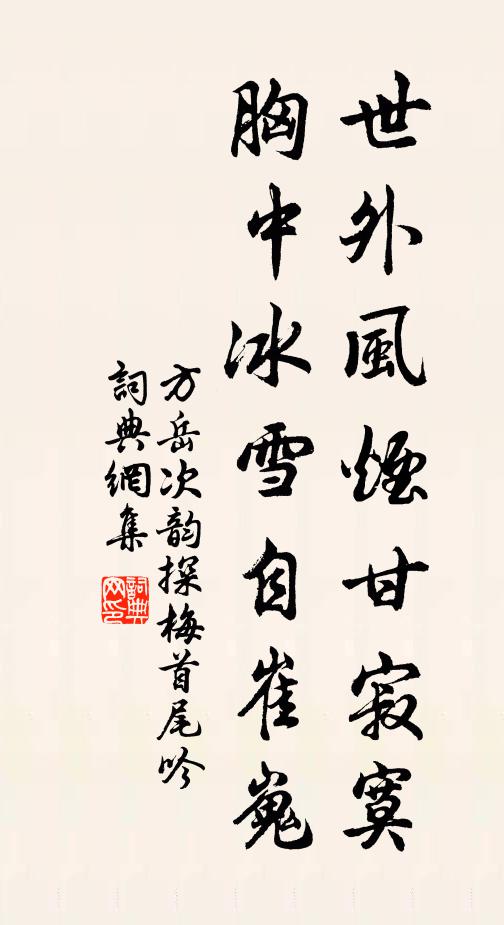 世外風煙甘寂寞
胸中冰雪自崔嵬
方岳次韵探梅首尾吟
詞典網集
詞典網印